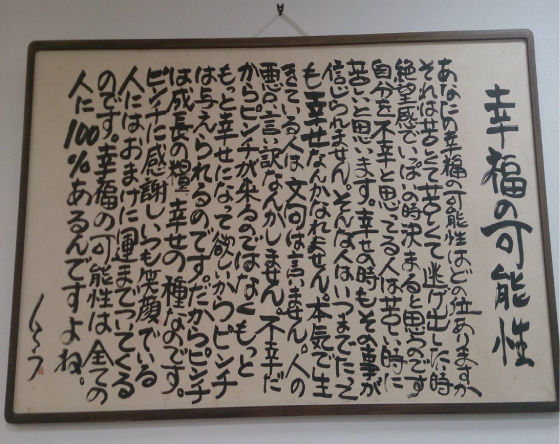 幸福の可能性
あなたの幸福の可能性はどの位ありますか
それは苦しくて苦しくて逃げ出した時
絶望感でいっぱいの時決まると思うのです
自分を不幸と思ってる人は苦しい時に
苦しいと思います。幸せの時もその事が
信じられません。そんな人はいつまでたって
も幸せなんかなれません。本気で生
きている人は文句は言いません。人の
悪口言い訳なんかしません。不幸だ
からピンチが来るのではなくもっと
もっと幸せになって欲しいからピンチ
は与えられるのです。だからピンチ
は成長の糧 幸せの種なのです。
ピンチに感謝しいつも笑顔でいる
人にはおまけに運までついてくる
のです。幸福の可能性は全ての
人に100%あるんですよね。